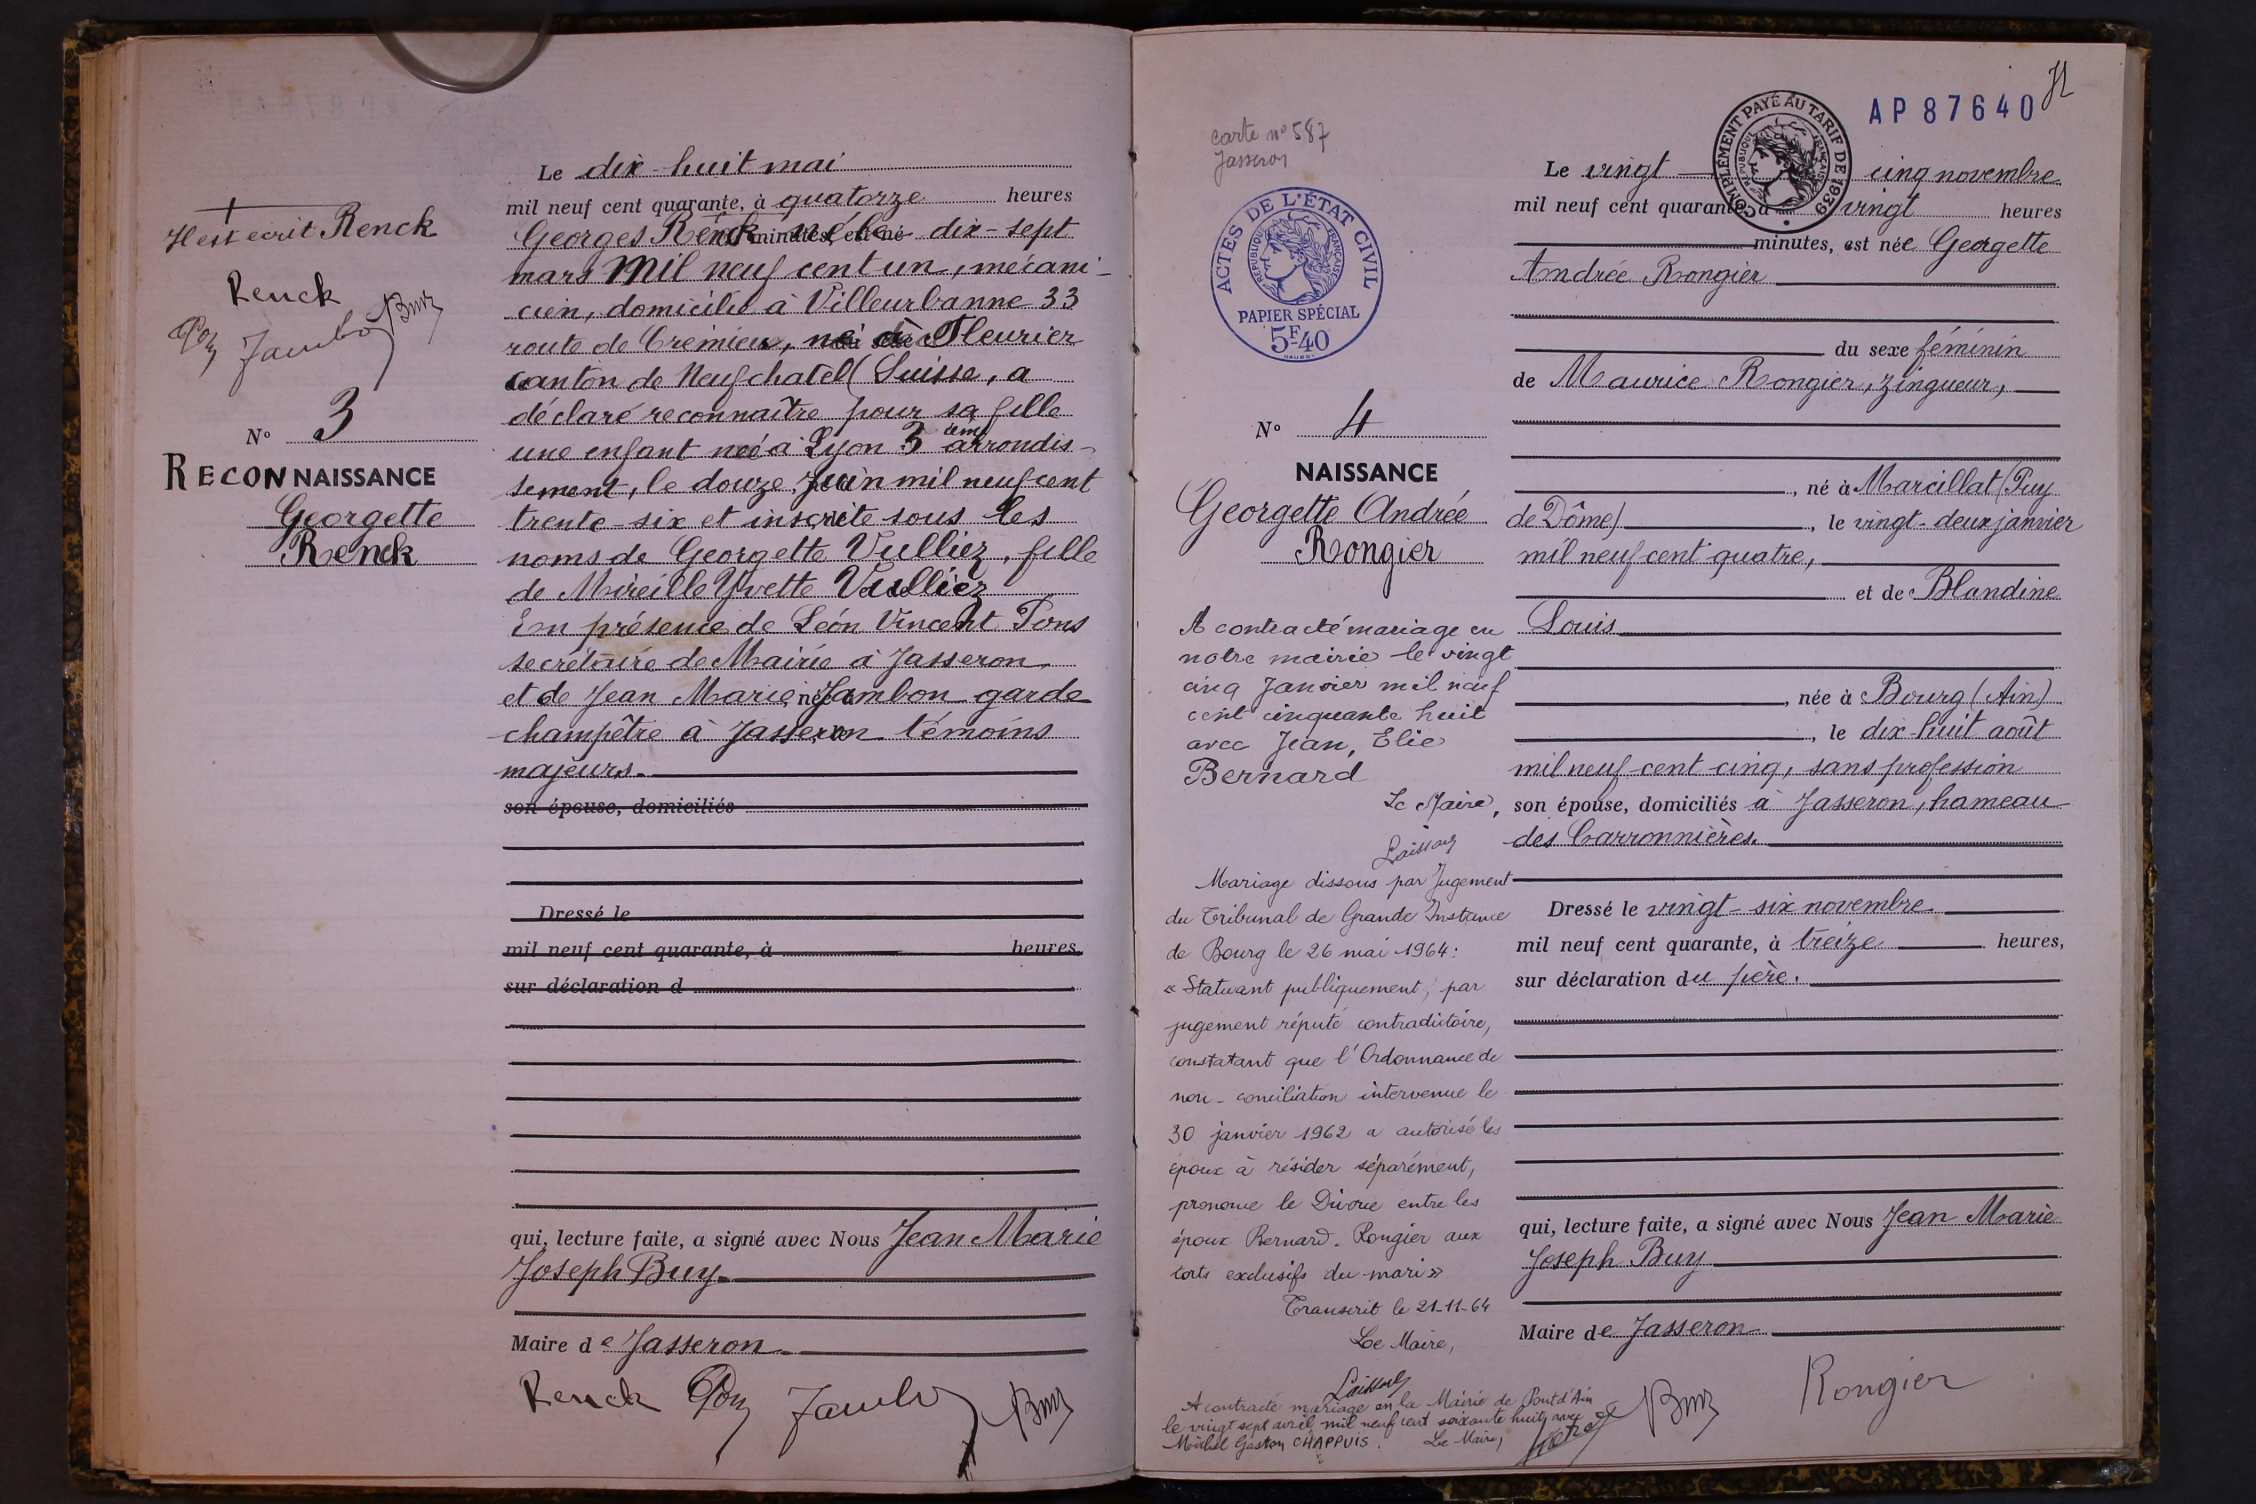 Il est écrit Renck
Renck
Jambon Buy
N° 3
RECONNAISSANCE
Georgette
Renck
Le dix-huit mai
mil neuf cent quarante, à quatorze heures
Georges Renck né le dix-sept
mars mil neuf cent un, mécani-
cien, domicilié à Villeurbanne 33
route de Crémieu, né à Fleurier
canton de Neufchatel (Suisse, a
déclaré reconnaître pour sa fille
une enfant née à Lyon 3 ème arrondis-
sement, le douze juin mil neuf cent
trente-six et inscrite sous les
noms de Georgette Vulliez, fille
de Mireille Yvette Vulliez
En présence de Léon Vincent Pons
secrétaire de Mairie à Jasseron
et de Jean Marie Jambon garde
champêtre à Jasseron témoins
majeurs.
son épouse, domiciliés
Dressé le
mil neuf cent quarante, à heures,
sur déclaration d
qui, lecture faite, a signé avec Nous Jean Marie
Joseph Buy.
Maire de Jasseron
Renck Pons Jambon Buy
carte n° 587
Jasseron
ACTES DE L'ÉTAT CIVIL
RÉPUBLIQUE FRANÇAISE
PAPIER SPÉCIAL
5F40
N° 4
NAISSANCE
Georgette Andrée
Rongier
A contracté mariage en
notre mairie le vingt
cinq Janvier mil neuf
cent cinquante huit
avec Jean, Elie
Bernard
Le Maire,
Mariage dissous par Jugement
du Tribunal de Grande Instance
de Bourg le 26 mai 1964:
« Statuant publiquement, par
jugement réputé contradictoire,
constatant que l'Ordonnance de
non-conciliation intervenue le
30 janvier 1962 a autorisé les
époux à résider séparément,
prononce le Divorce entre les
époux Bernard. Rongier aux
torts exclusifs du mari »
Transcrit le 21-11-64
Le Maire,
A contracté mariage en la Mairie de Pont d'Ain
le vingt sept avril mil neuf cent soixante huit avec
Michel Gaston CHAPPUIS. Le Maire,
AP 87640
COMPLÉMENT PAYÉ AU TARIF DE 1939
RÉPUBLIQUE FRANÇAISE
Le vingt cinq novembre
mil neuf cent quarante, à vingt heures
minutes, est née Georgette
Andrée Rongier
du sexe féminin
de Maurice Rongier, zingueur,
, né à Marcillat (Puy
de Dôme) , le vingt-deux janvier
mil neuf cent quatre,
et de Blandine
Louis
, née à Bourg (Ain)
, le dix-huit août
mil neuf cent cinq, sans profession
son épouse, domiciliés à Jasseron, hameau
des Carronnières.
Dressé le vingt-six novembre
mil neuf cent quarante, à treize heures,
sur déclaration du père.
qui, lecture faite, a signé avec Nous Jean Marie
Joseph Buy
Maire de Jasseron
Buy Rongier